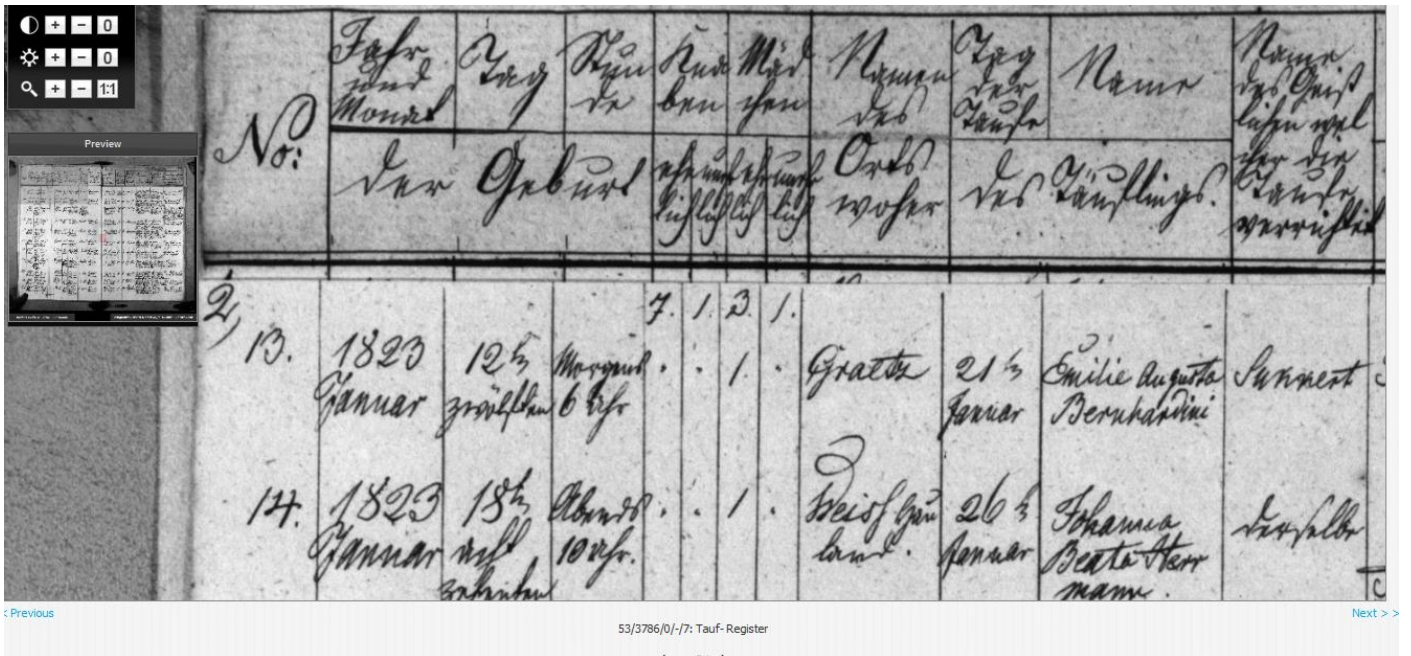 + - 0
+ - 0
+ - 1:1
Preview
No:
Jahr und Monat
Tag
Stunde
der Geburt
Knaben
Mädchen
ehelich unehelich ehelich unehelich
Namen des Orts woher
Tag der Taufe
Name
des Täuflings.
Name des Geistlichen welcher die Taufe verrichtet
2,
7. 1. 3. 1.
13.
1823 Januar
12ten zwölften
Morgens 6 Uhr
. . 1. .
Graetz
21ten Januar
Emilie Augusta Bernhardini
14.
1823 Januar
18ten achtzehnten
Abends 10 Uhr.
. . 1 .
land.
26 Januar
Johanna Beata Herrmann.
derselbe
< Previous
Next > >
53/3786/0/-/7: Tauf- Register